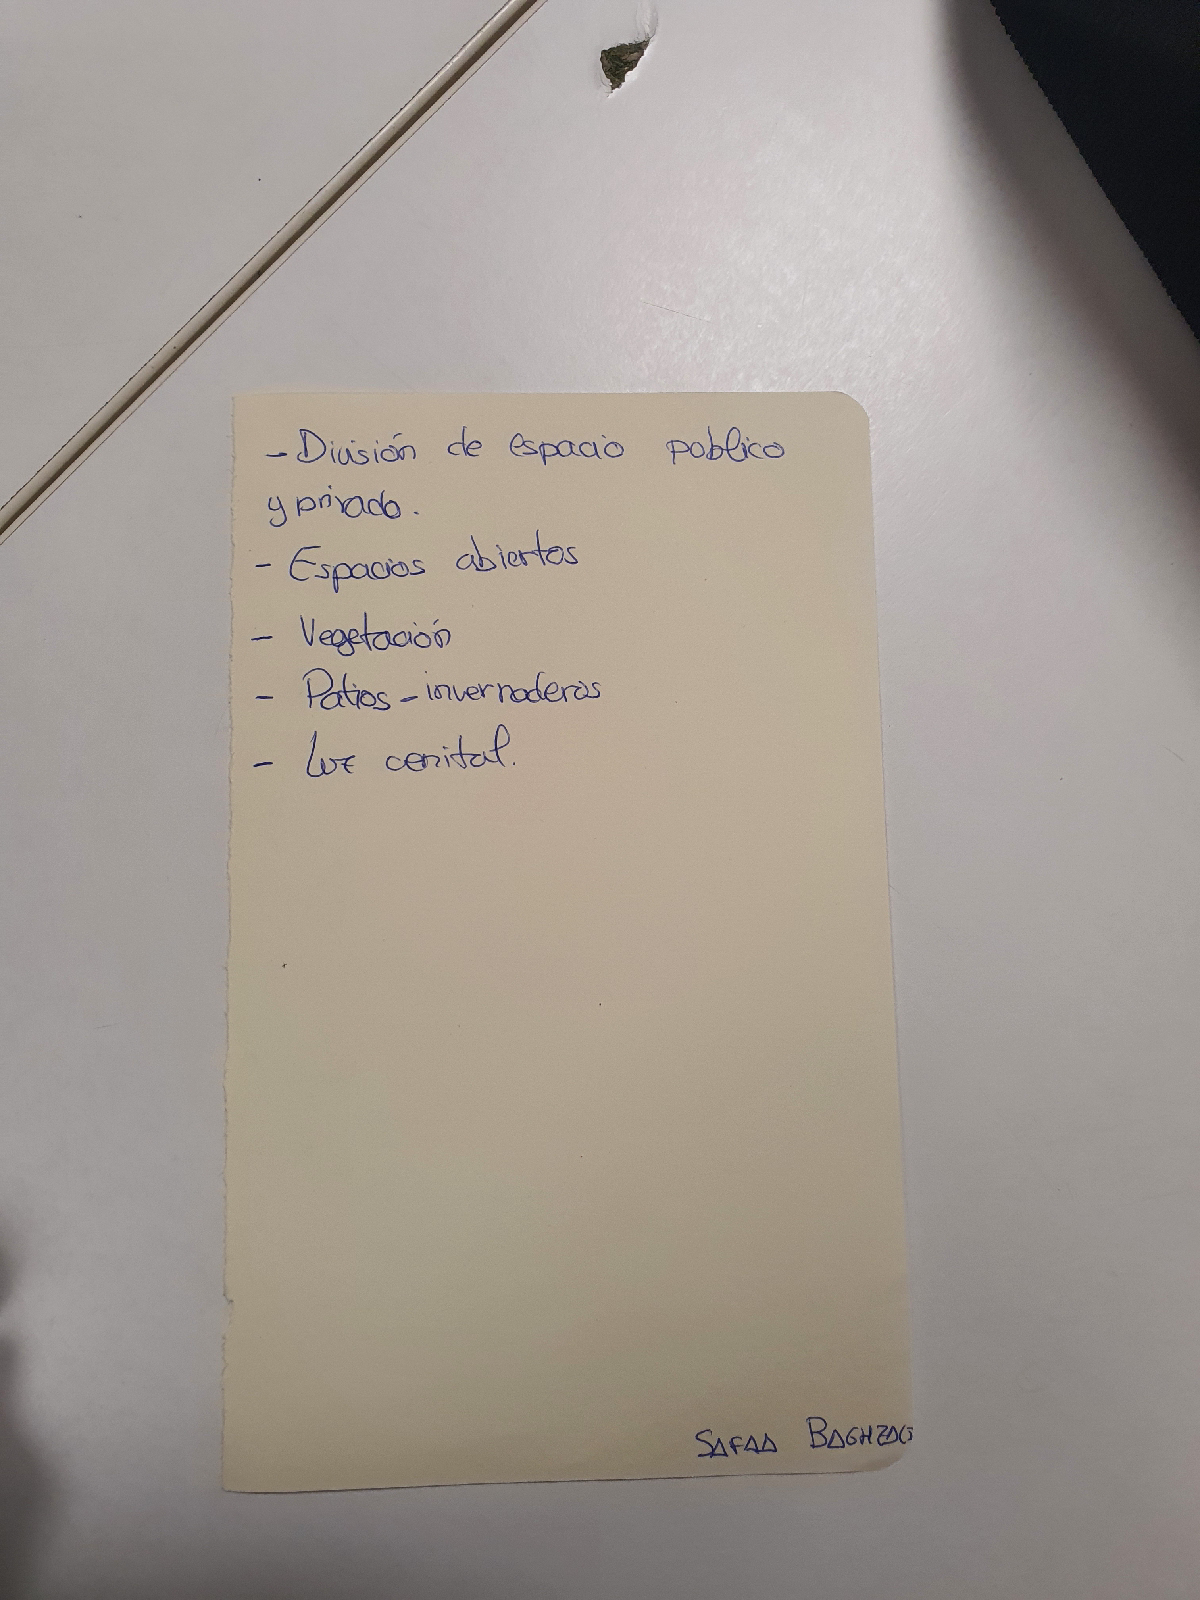 - División de espacio poblico
y privado.
- Espacios abiertos
- Vegetación
- Patios - invernaderos
- Luz cenital.
SAFAA BAGHZAG